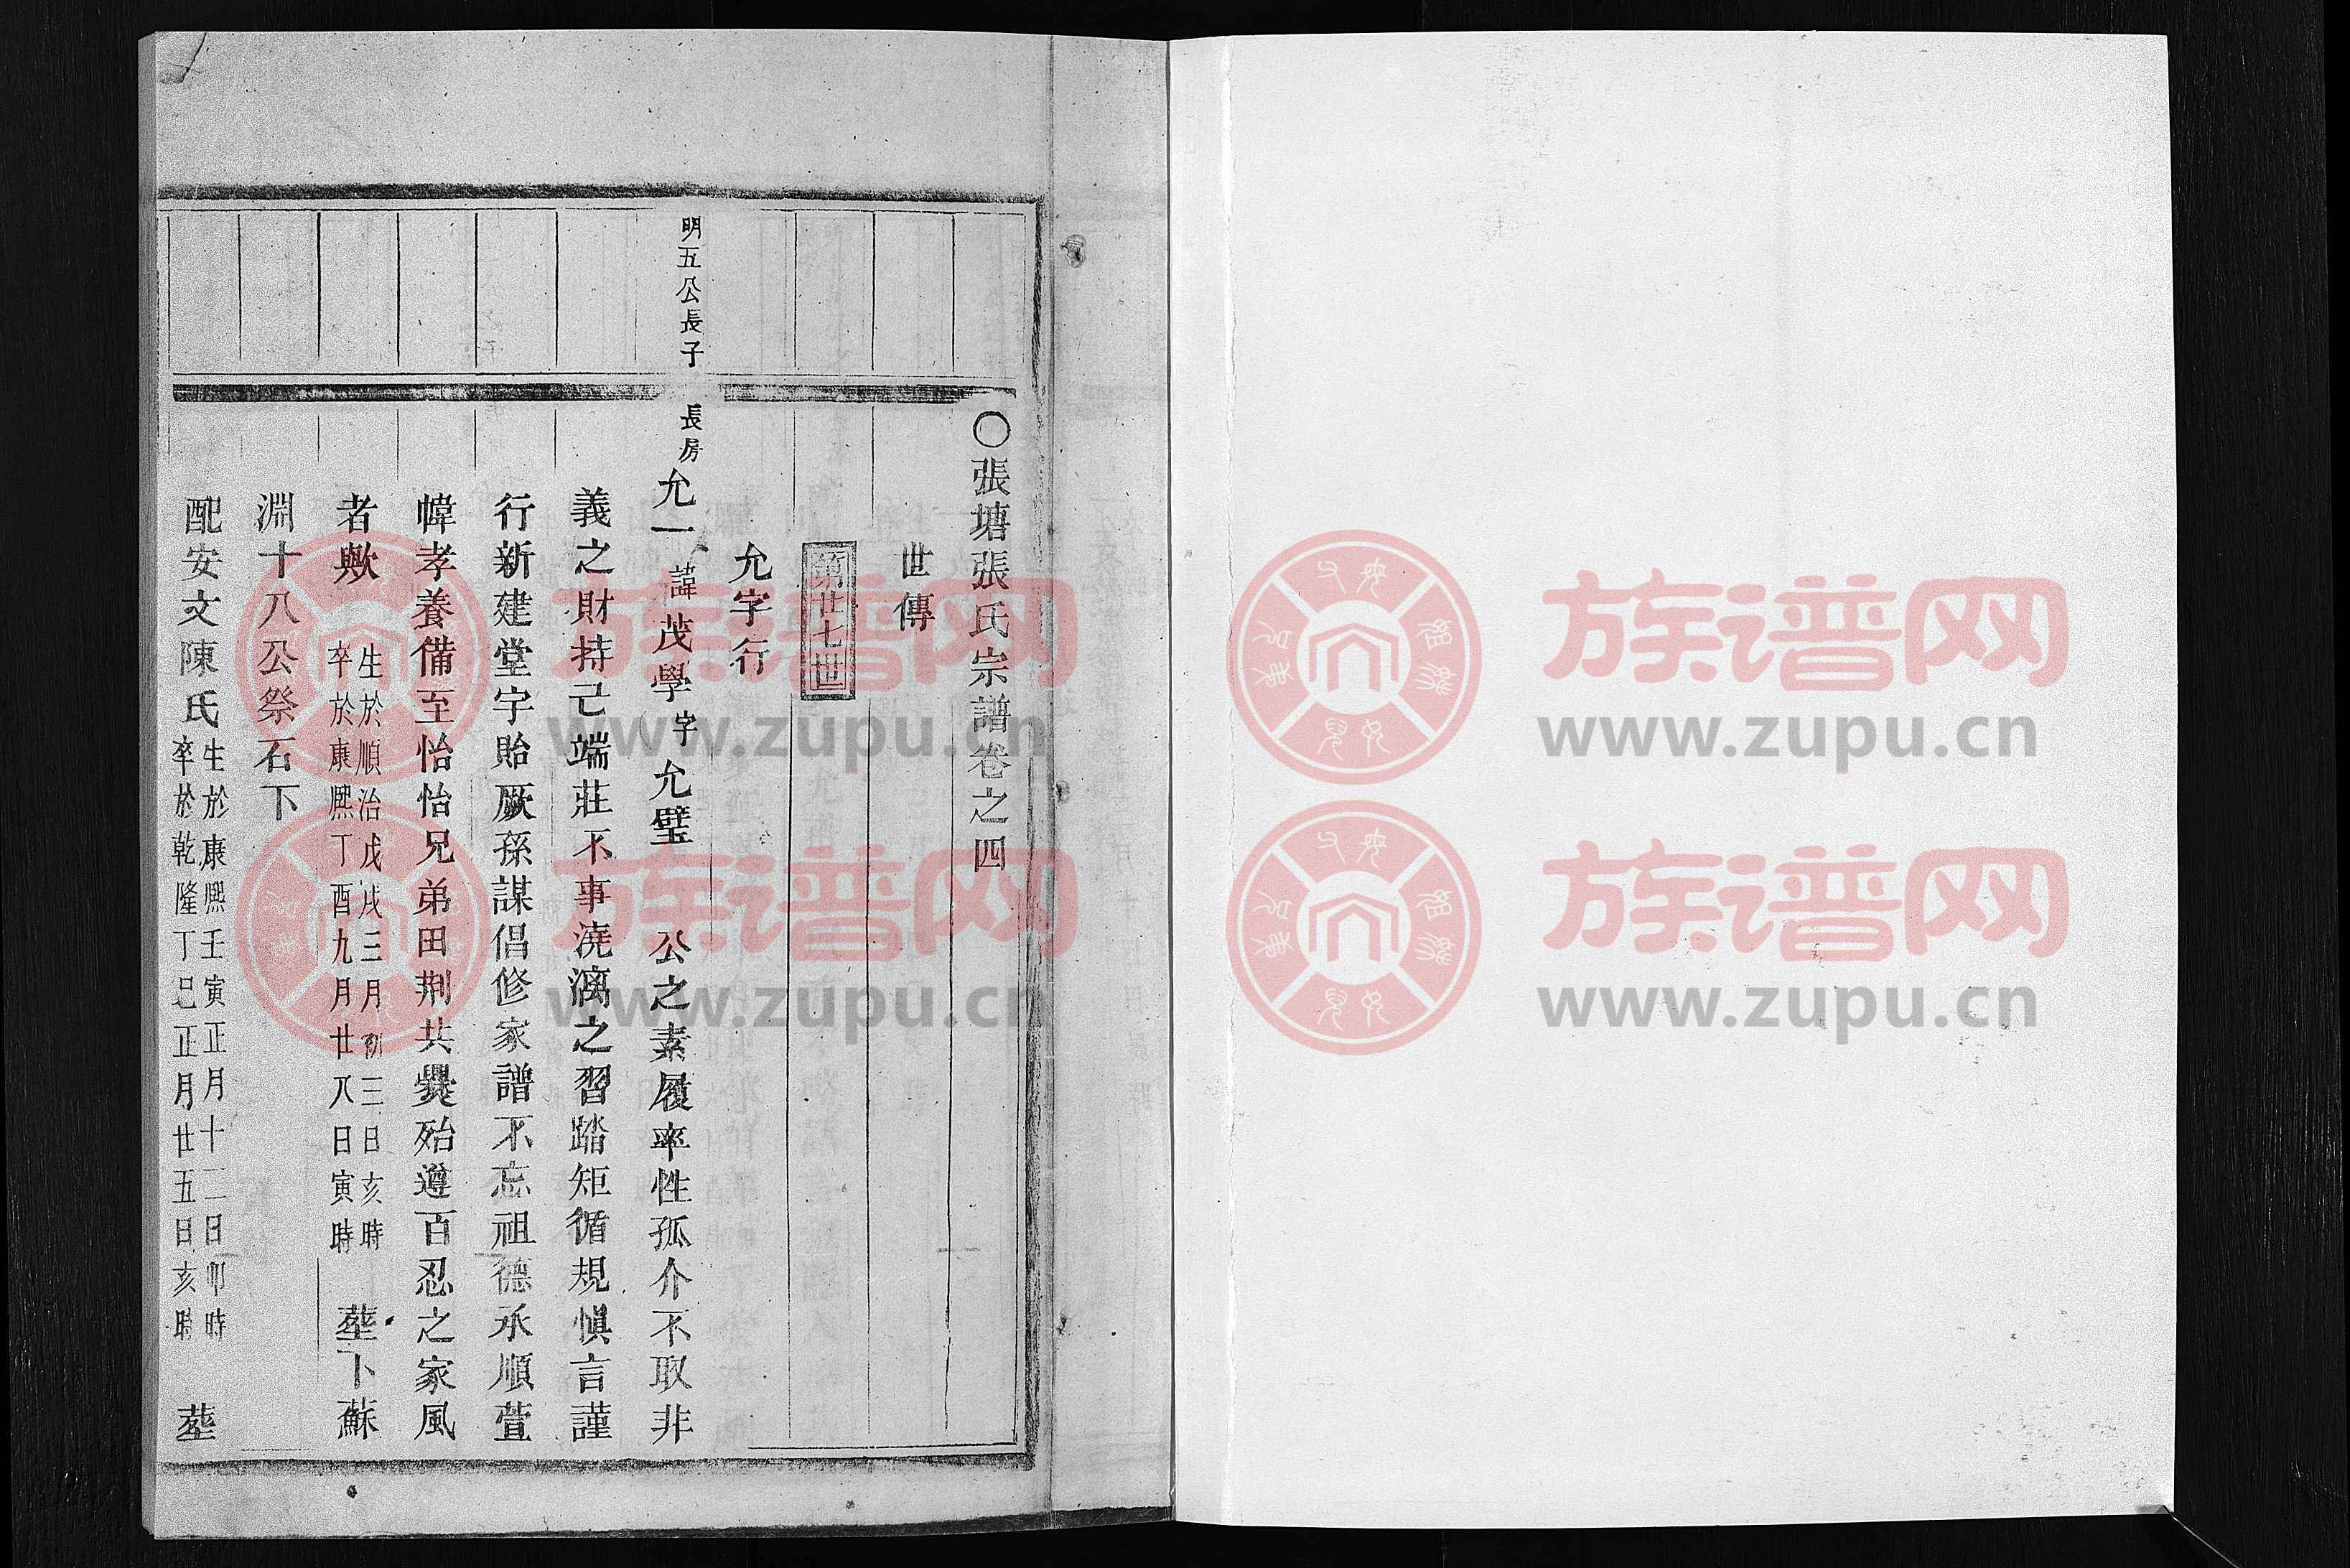 ○張塘張氏宗譜卷之四
世傳
第廿七世
允字行
明五公長子
長房
允一諱茂學字允璧 公之素履率性孤介不取非
義之財持己端莊不事澆漓之習踏矩循規慎言謹
行新建堂宇貽厥孫謀倡修家譜不忘祖德承順萱
幃孝養備至怡怡兄弟田荆共爨殆遵百忍之家風
者歟
生於順治戊戌三月初三日亥時
卒於康熙丁酉九月廿八日寅時
塟卜蘇
淵十八公祭石下
配安文陳氏
生於康熙壬寅正月十二日卯時
卒於乾隆丁巳正月廿五日亥時
塟
族谱网
www.zupu.cn
族谱网
www.zupu.cn
族谱网
www.zupu.cn
族谱网
www.zupu.cn